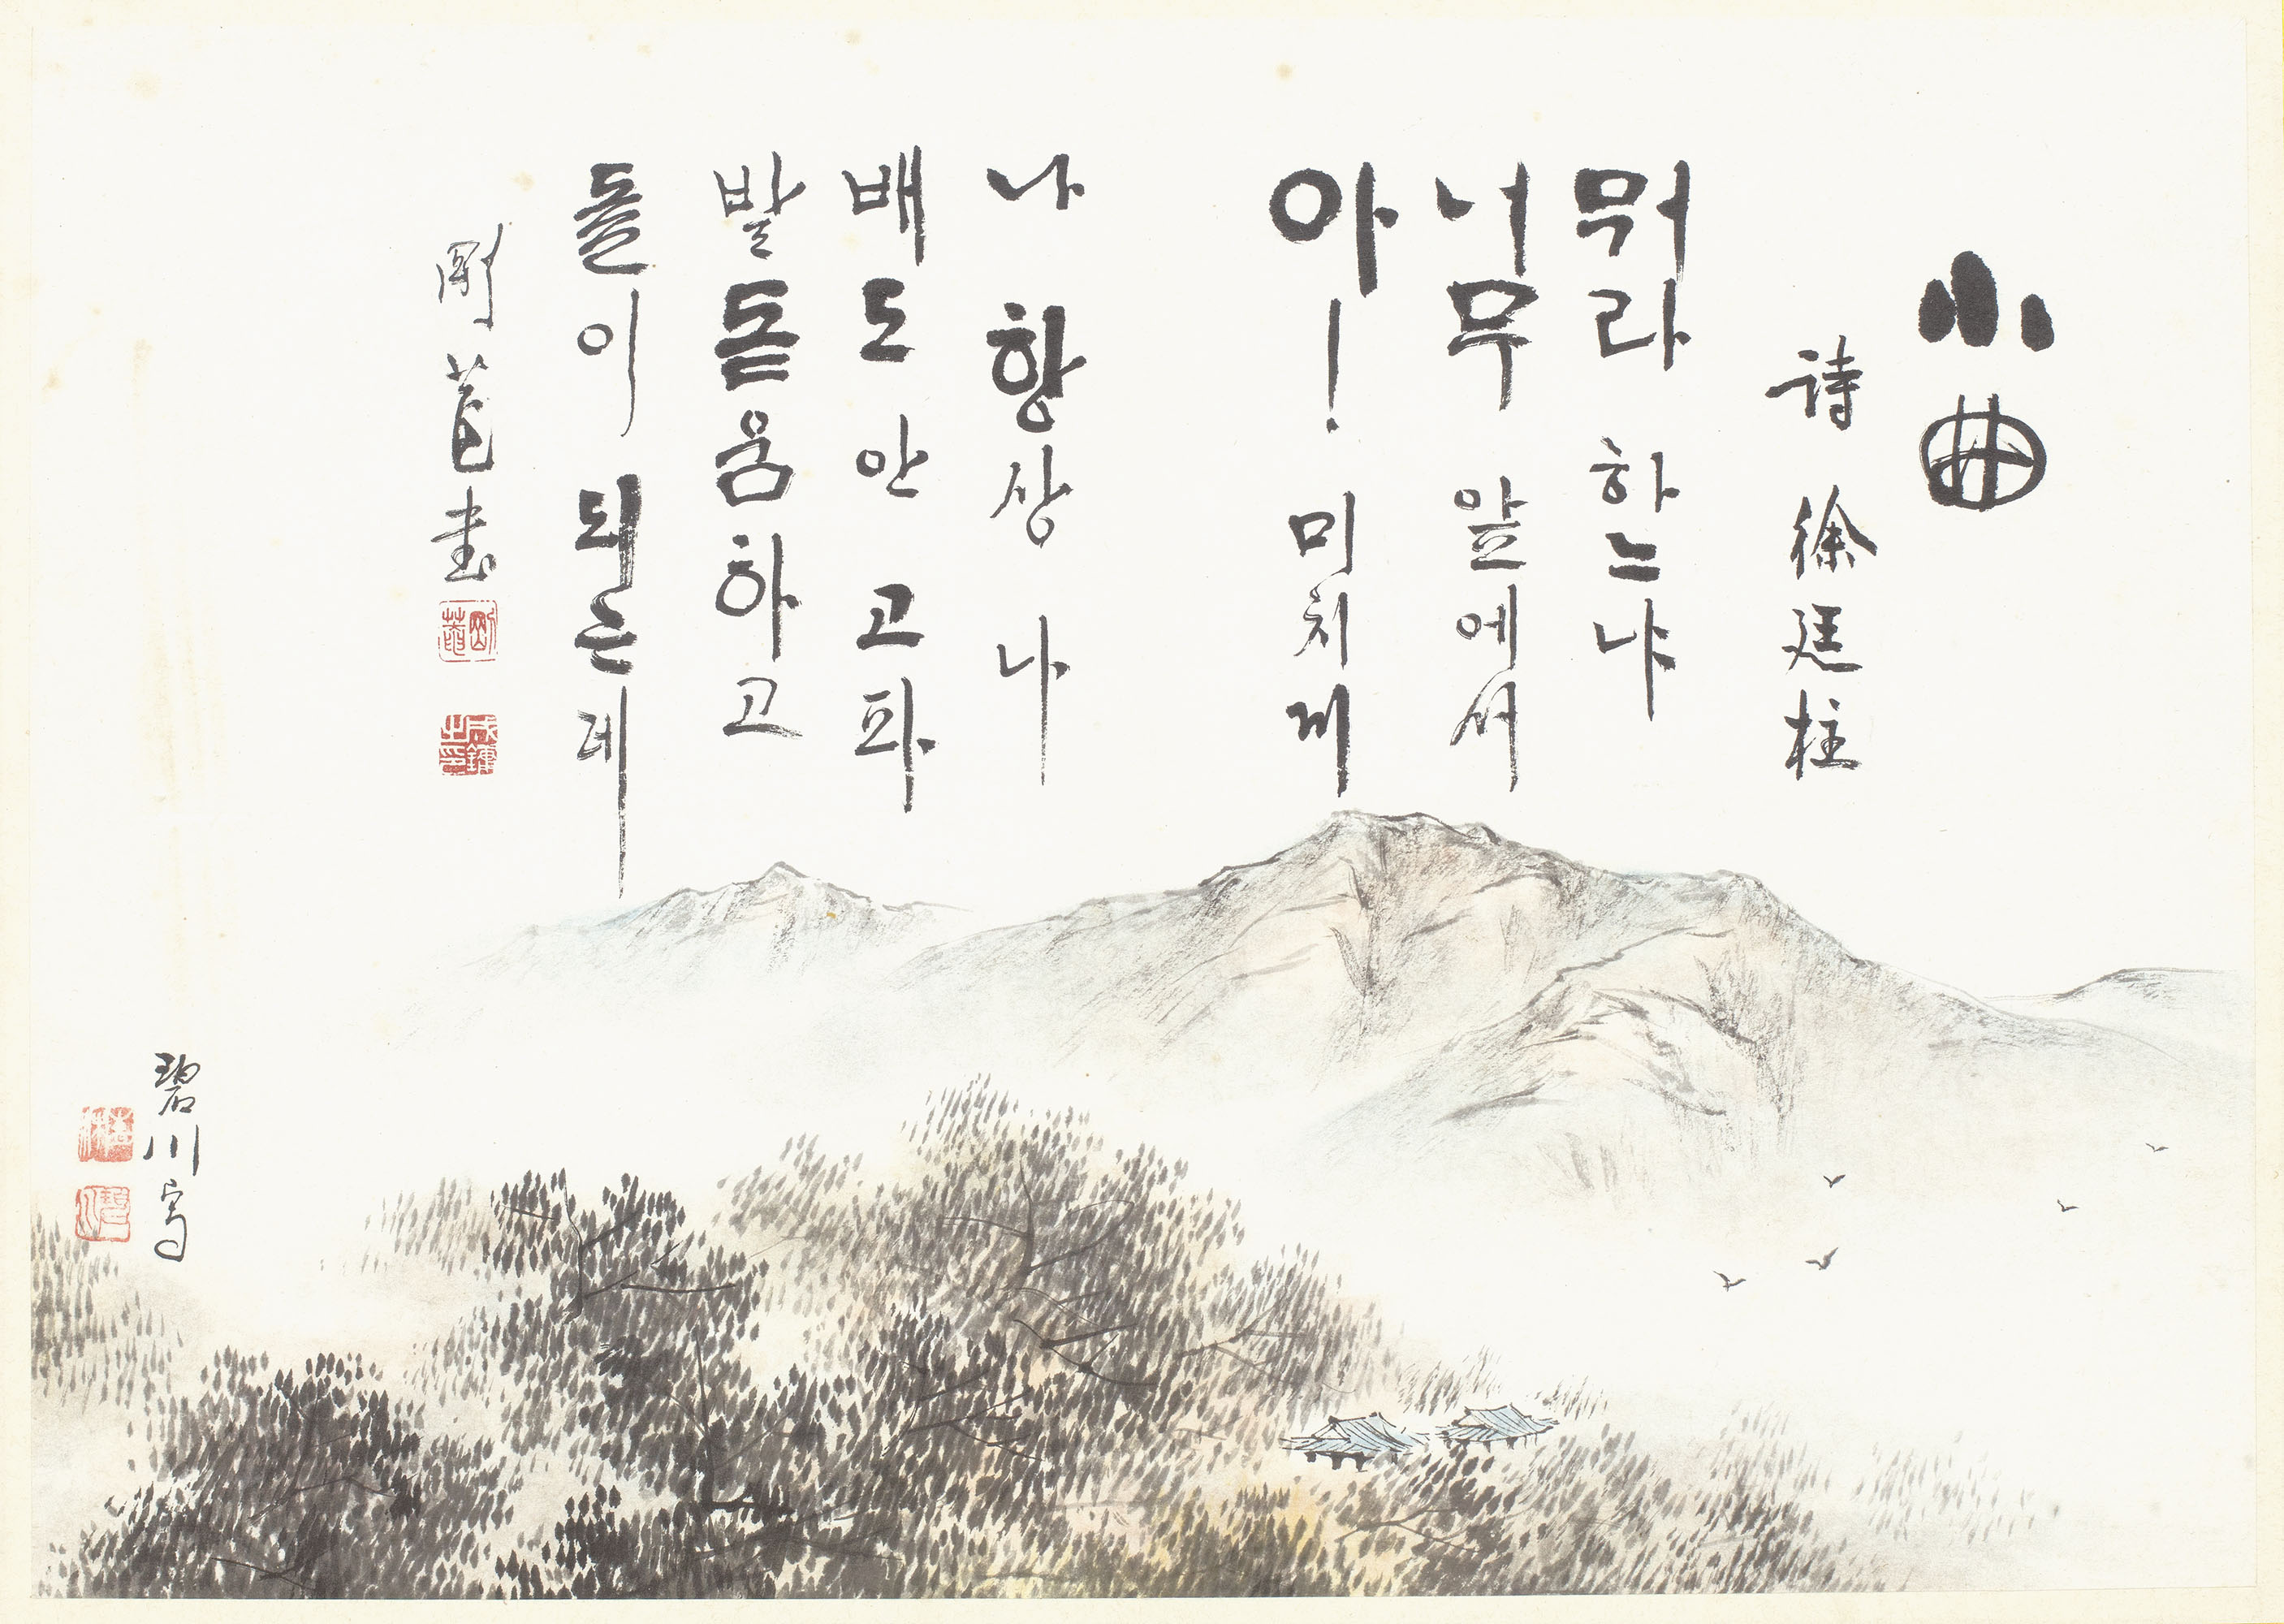 小曲
詩 徐廷柱
뭐라 하느냐
너무 앞에서
아! 미치게
나 항상 나
배도 안 고파
발돋움하고
돌이 되는데
剛菴書
剛菴
成鏞之印
碧川寫